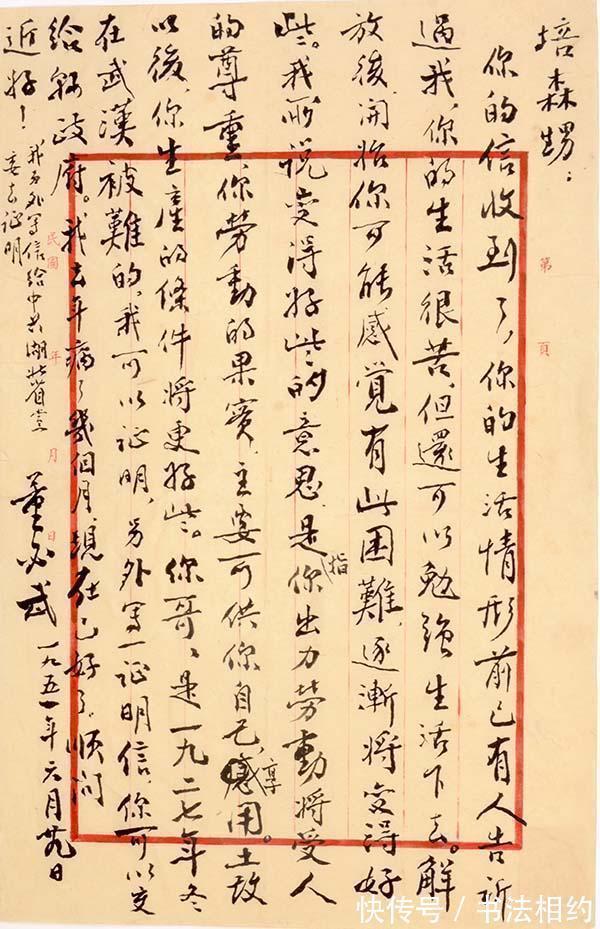 培森甥：
你的信收到了，你的生活情形前已有人告訴
過我，你的生活很苦，但還可以勉強生活下去。解
放後，開始你可能感覺有些困難，逐漸將变得好
些。我所说变得好些的意思，是指你出力勞動將受人
的尊重，你劳動的果實，主要可供你自己享用。土改
以後，你生產的條件將更好些。你哥哥是一九二七年冬
在武漢被難的，我可以证明，另外寫一证明信，你可以交
給縣政府。我去年病了幾個月，現在已好了。順问
近好！
我另外寫信給中共湖北省党
委去证明
董必武
一九五一年六月廿九日
第 頁
民國 年 月 日
快传号／书法相约